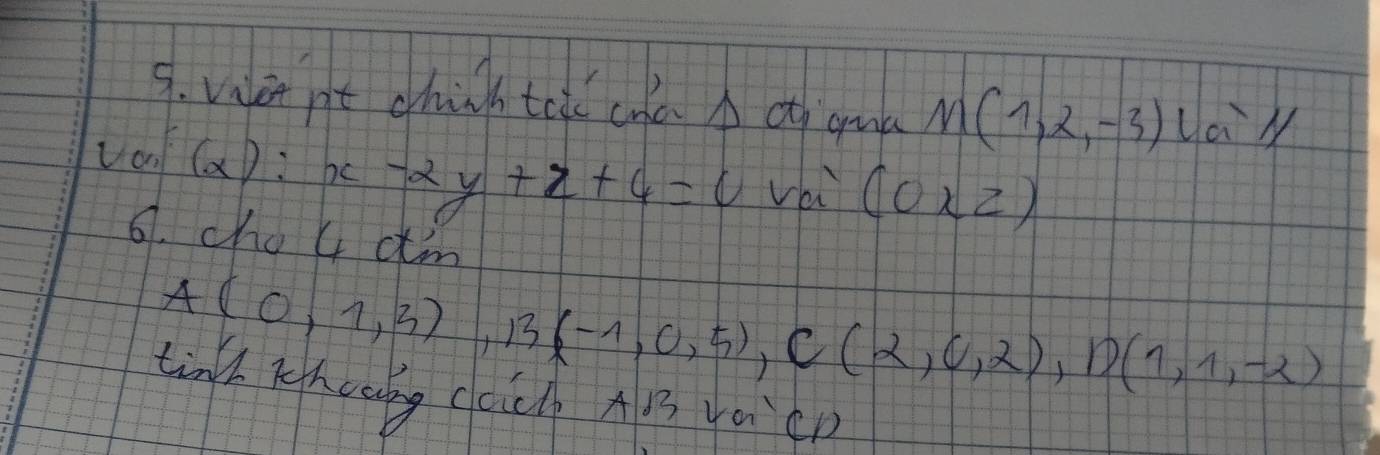 5. Viết pt chính tắc của Δ đi qua M(1,2,-3) và //
với (α): x -2y + z + 4 = 0 và (Oxz)
6. cho 4 đim
A(0,1,3), B(-1,0,5), C(2,0,2), D(1,1,-2)
tính khoảng cách AB và CD